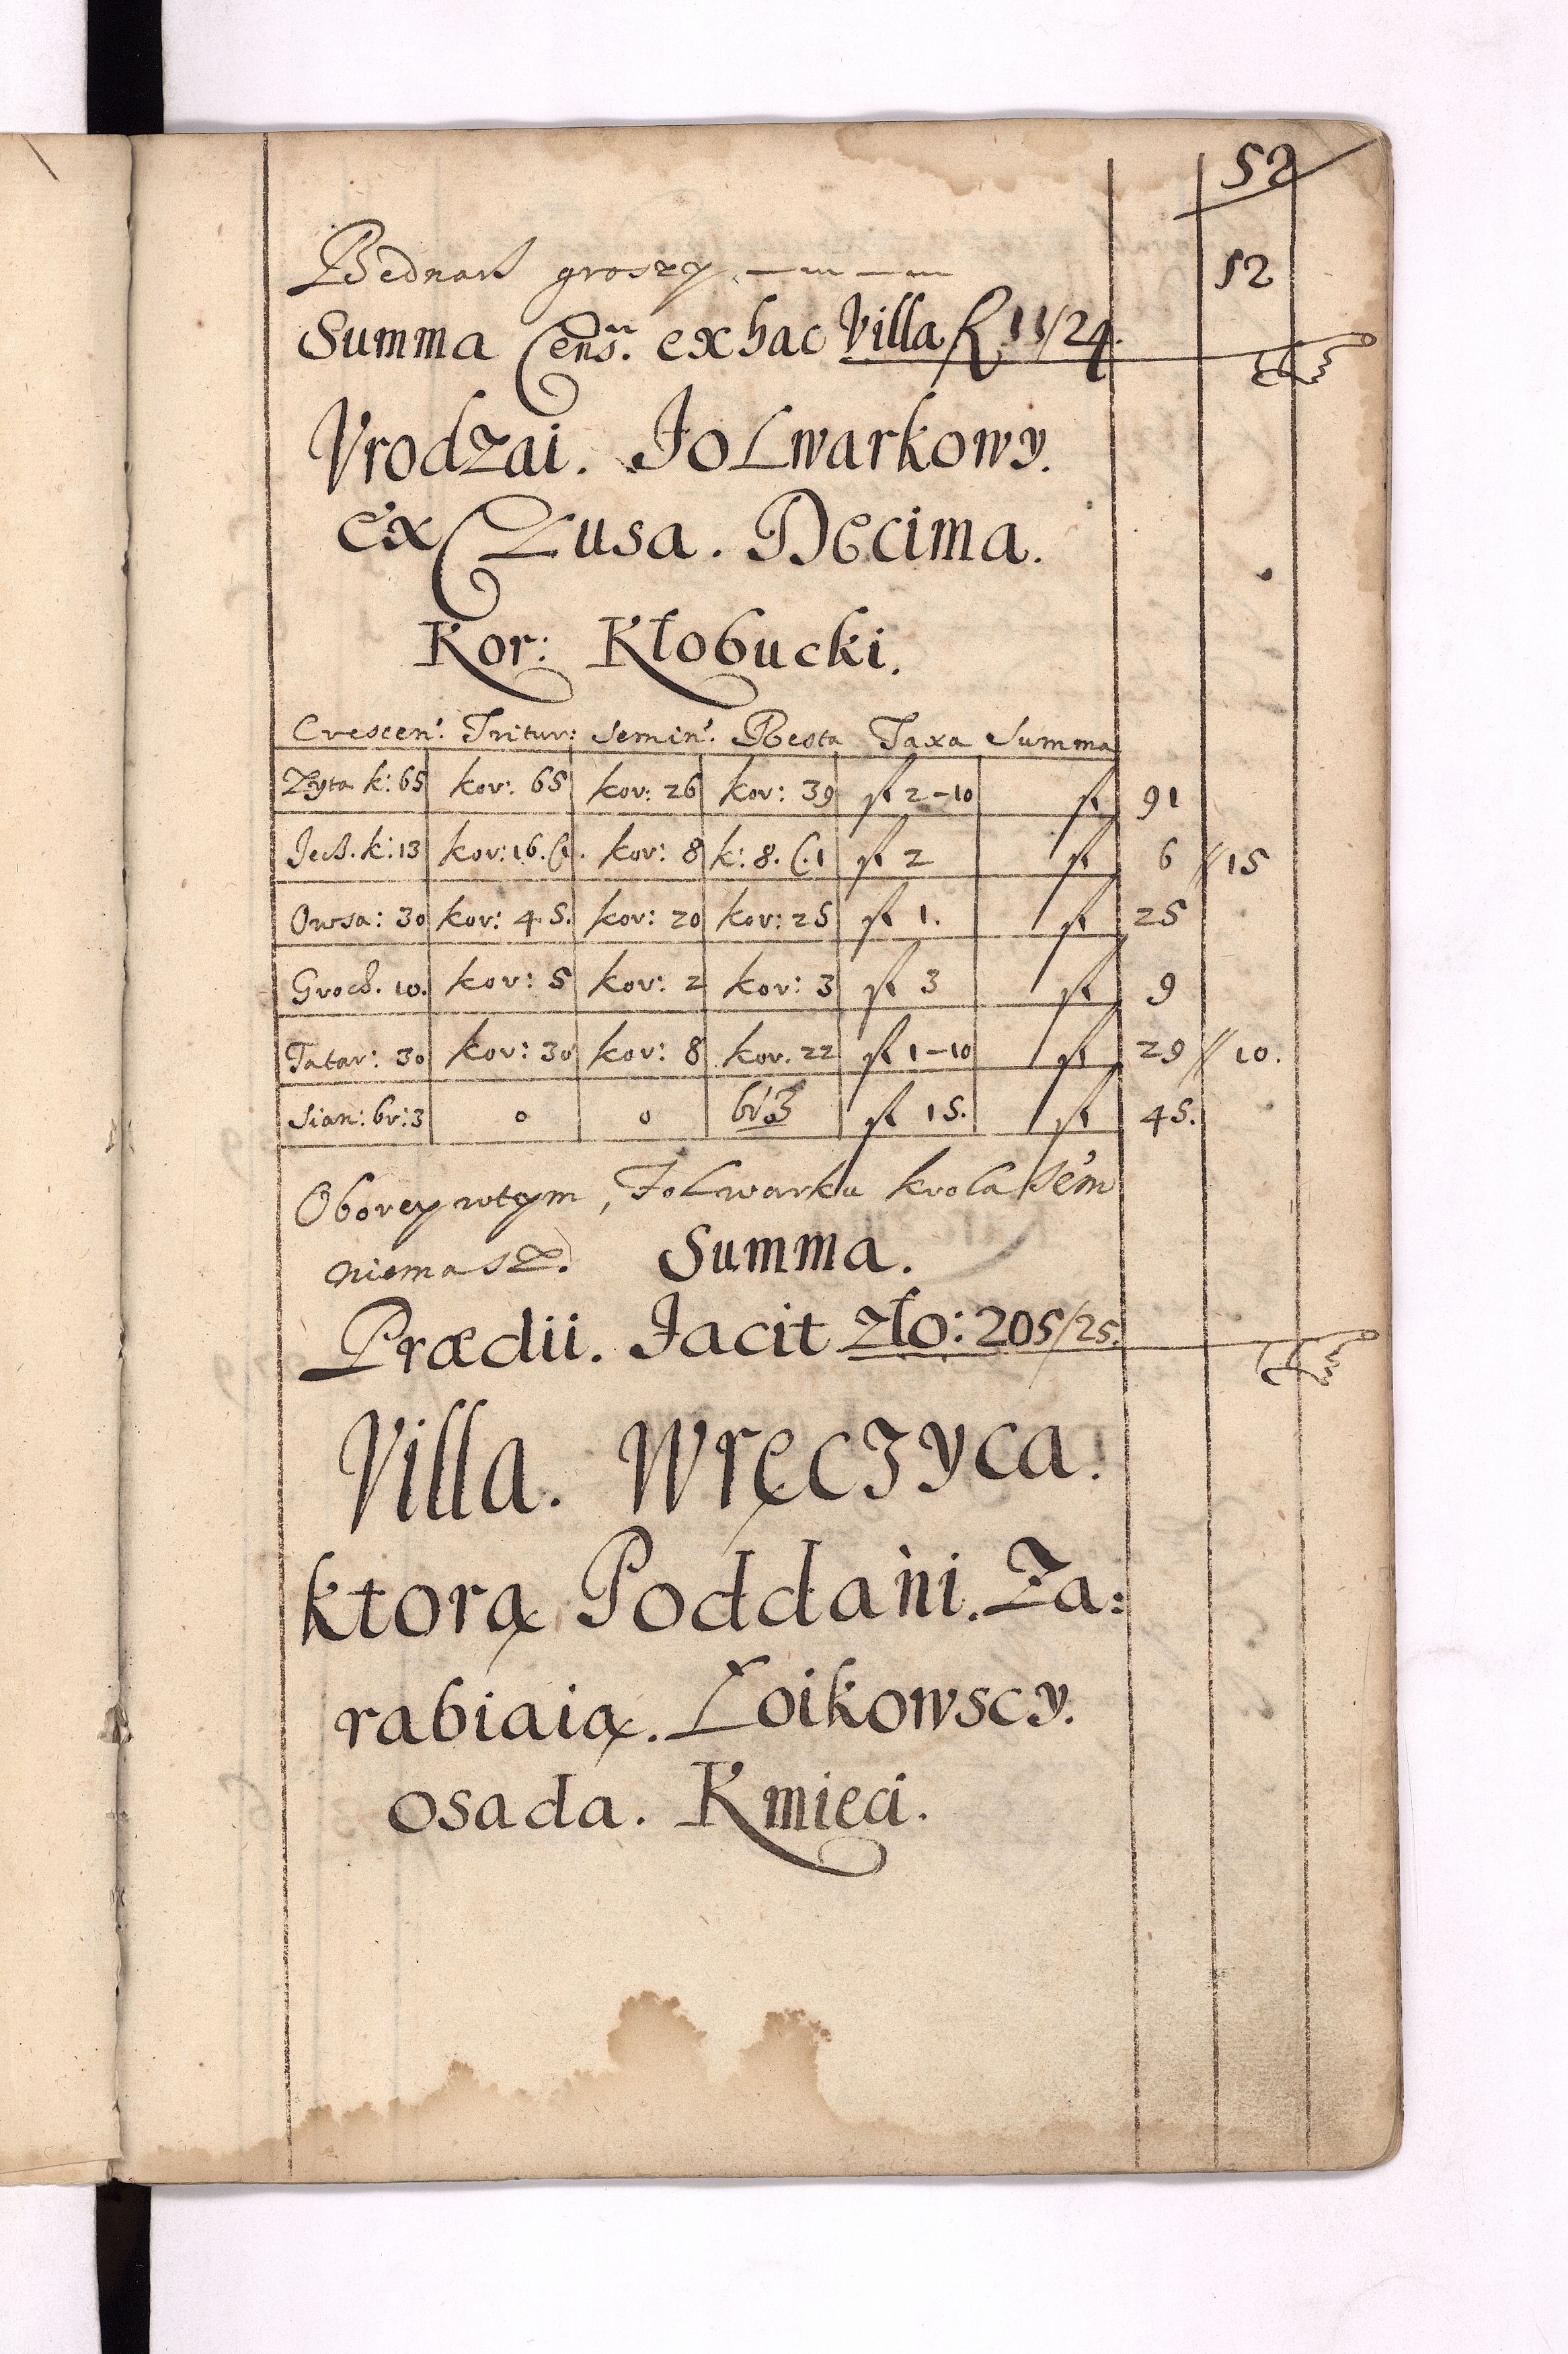 52
Bednarz groszy 52
Summa Cens. ex hac Villa fl 11/24.
Vrodzai. FoLwarkowy.
ex CLusa. Decima.
Kor: Kłobucki.
Crescen: Tritur: Semin: Resta Taxa Summa
Zyta k: 65 kor: 65 kor: 26 kor: 39 fl 2-10 fl 91
Jecz. k: 13 kor: 16. kor: 8 k: 8. C.1 fl 2 fl 6 // 15
Owsa: 30 kor: 45. kor: 20 kor: 25 fl 1. fl 25
Groch. 10. kor: 5 kor: 2 kor: 3 fl 3 fl 9
Tatar: 30 kor: 30 kor: 8 kor. 22 fl 1-10 fl 29 // 10.
Sian: br: 3 0 0 br: 3 fl 15. fl 45.
Obory wtym, FoLwarku
niemasz. Summa.
Prædii. Facit zło: 205/25.
Villa. Wręczyca.
ktorą Poddani. Za:
rabiaią. Łoikowscy.
osada. Kmieci.